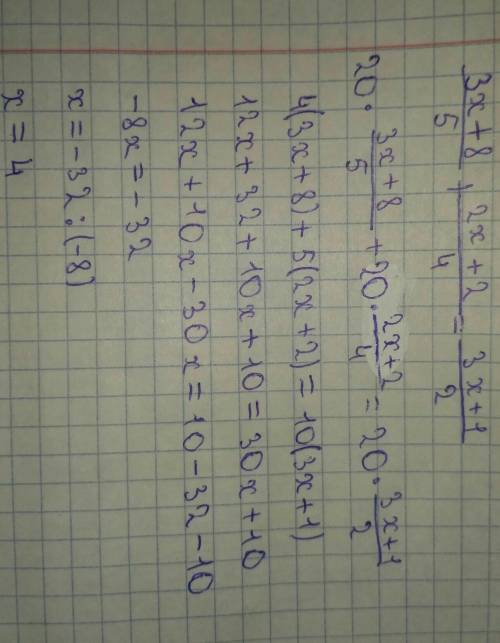 (3x+8)/5 + (2x+2)/4 = (3x+1)/2
20 · (3x+8)/5 + 20 · (2x+2)/4 = 20 · (3x+1)/2
4(3x+8) + 5(2x+2) = 10(3x+1)
12x + 32 + 10x + 10 = 30x + 10
12x + 10x - 30x = 10 - 32 - 10
-8x = -32
x = -32 : (-8)
x = 4